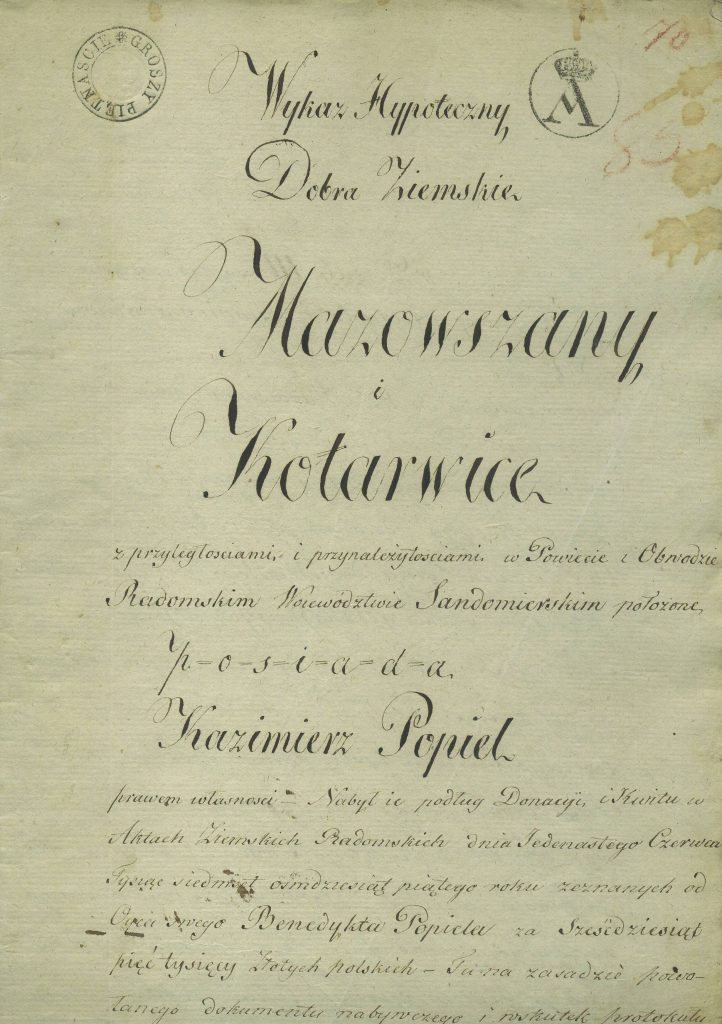 PIĘTNAŚCIE GROSZY
70
85
Wykaz Hypoteczny
Dobra Ziemskie
Mazowszany
i
Kotarwice
z przyległosciami, i przynależytosciami, w Powiecie i Obwodzie
Radomskim Woiewodztwie Sandomierskim położone,
p=o=s=i=a=d=a.
Kazimierz Popiel
prawem własnosci – Nabył ie podług Donacyi, i Kwitu w
Aktach Ziemskich Radomskich dnia Jedenastego Czerwca
Tysiąc siedmset ośmdziesiąt piątego roku zeznanych od
Oyca swego Benedykta Popiela za Sześćdziesiąt
pięć tysięcy Złotych polskich – Tu na zasadzie powo-
łanego dokumentu nabywczego i wskutek protokułu